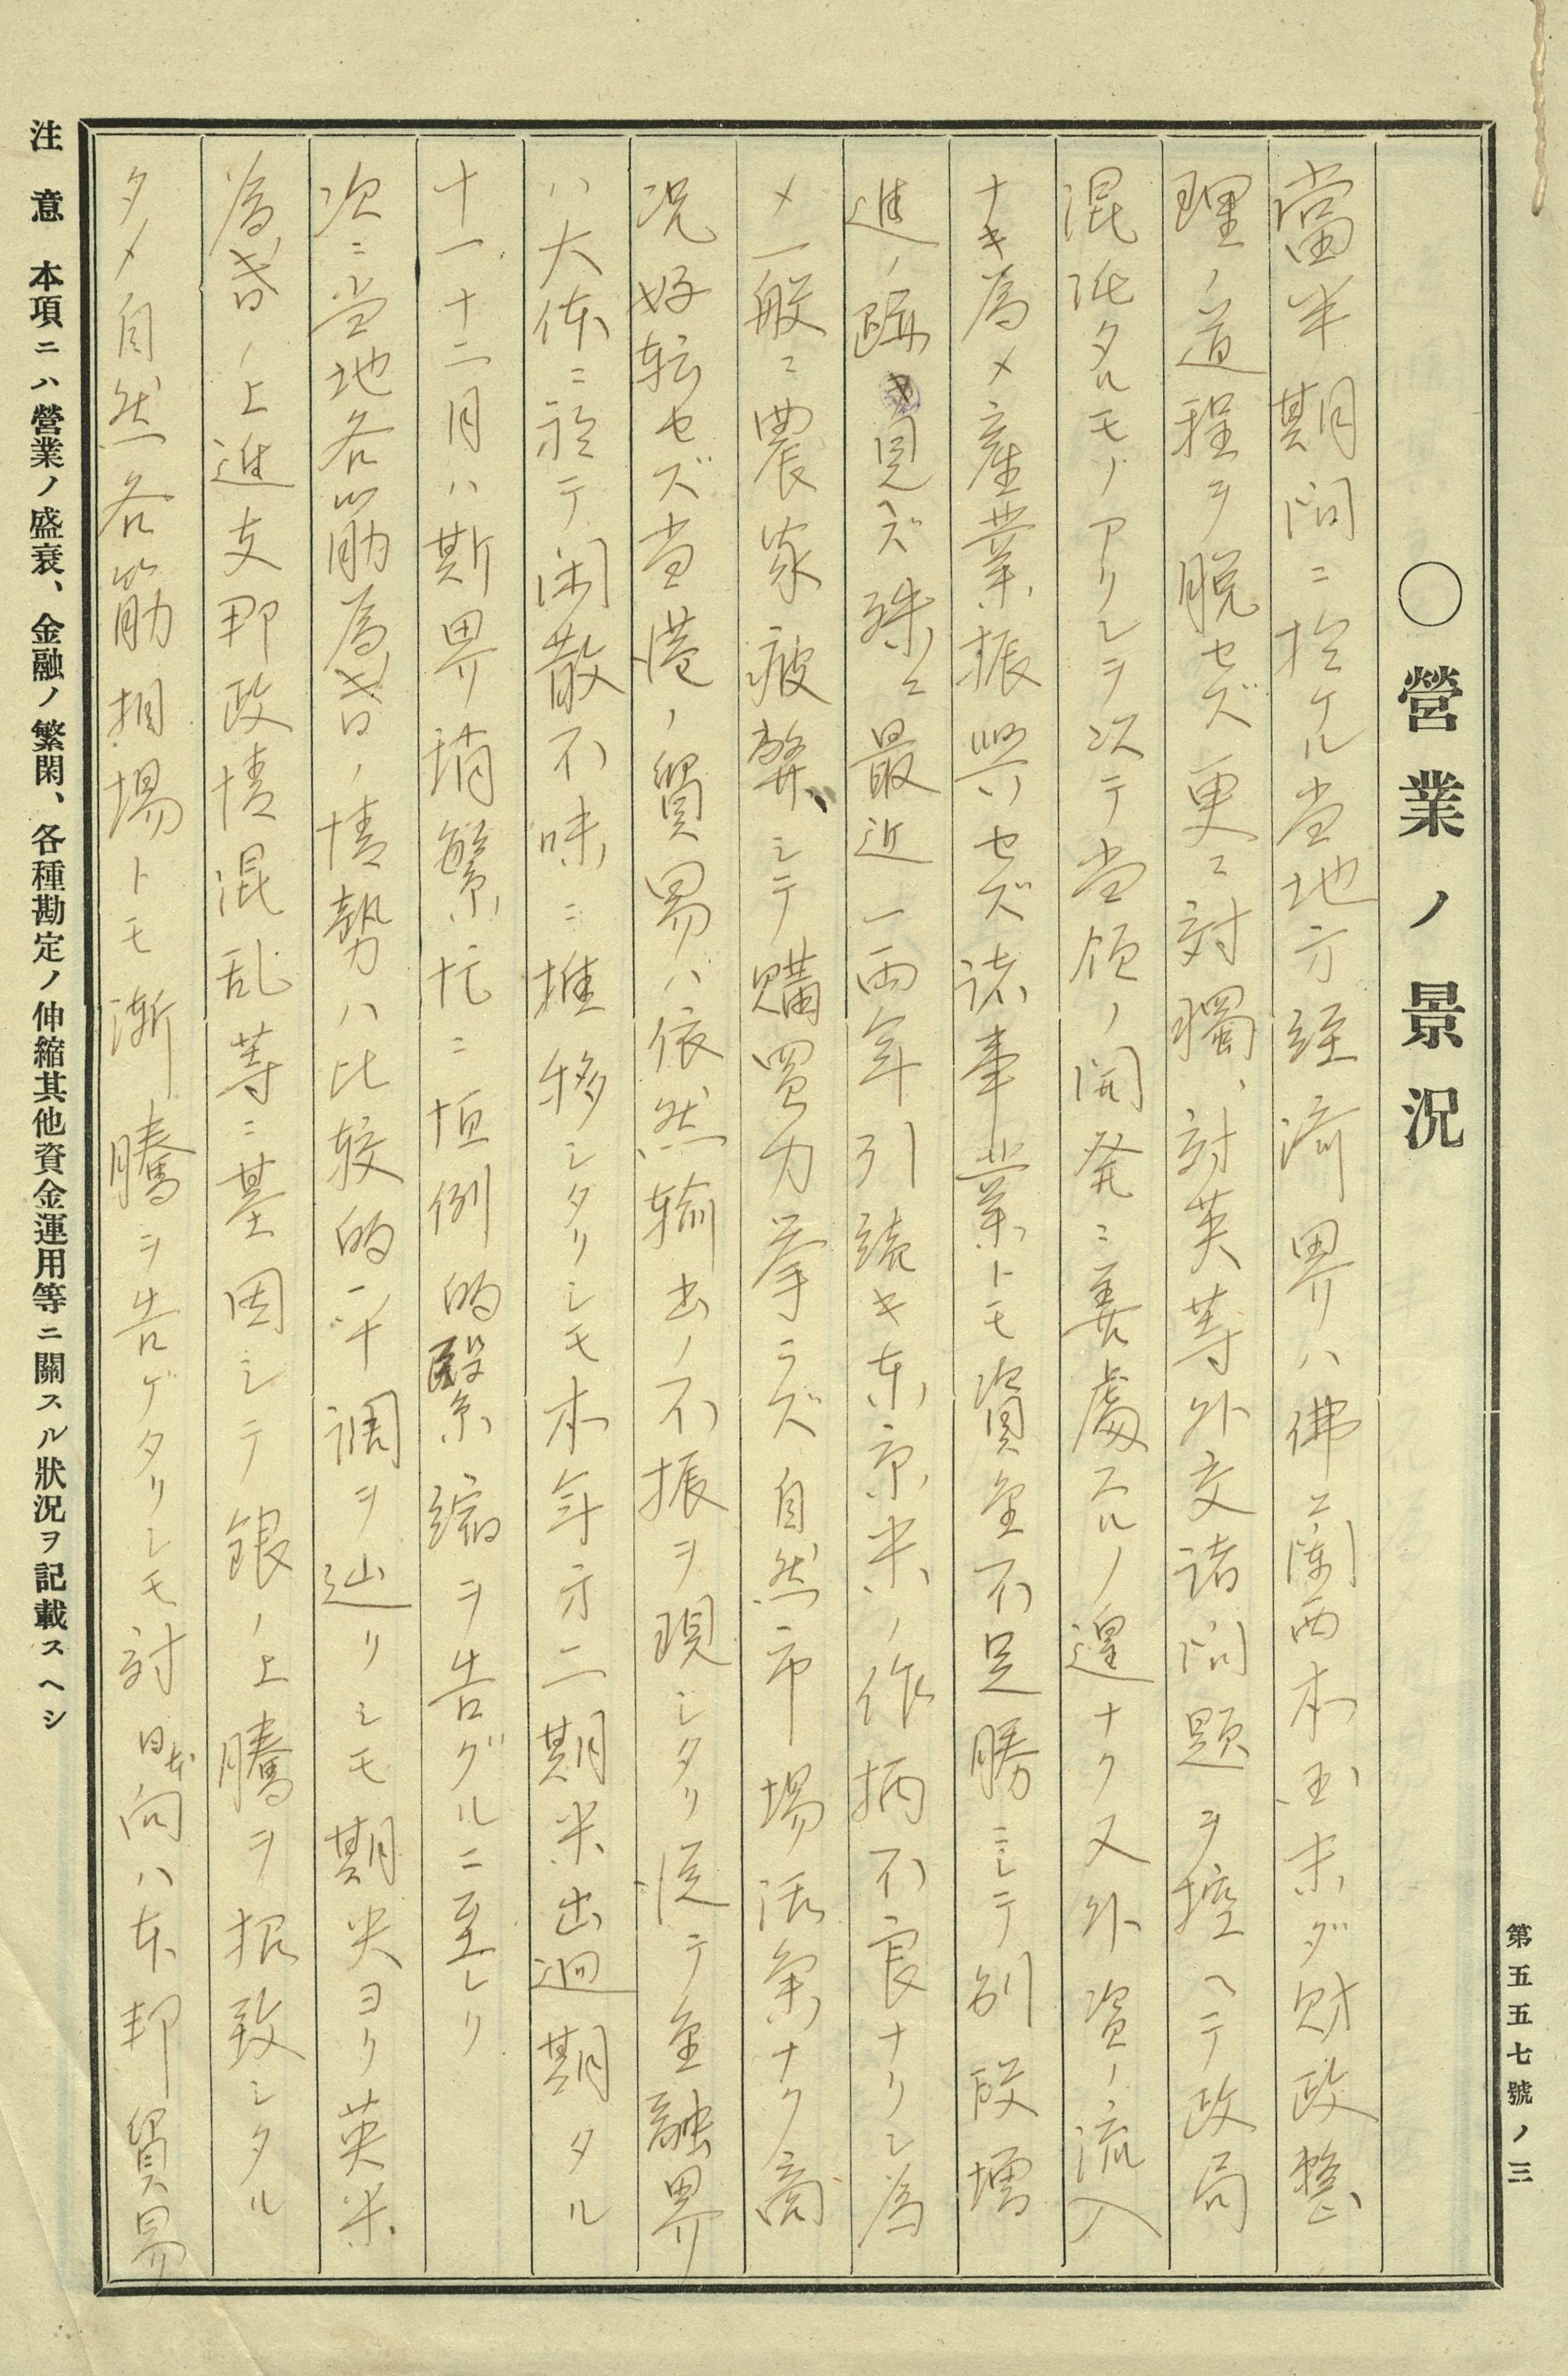 第五五七號ノ三
○營業ノ景況
當半期間ニ於ケル当地方経済界ハ佛ニ蘭西本国未ダ財政整
理ノ道程ヲ脱セズ更ニ対獨、対英等外交諸問題ヲ控ヘテ政局
混沌タルモノアリシヲ以テ当領ノ開発ニ善處スルノ遑ナク又外資ノ流入
ナキ為メ産業振興セズ諸事業トモ資金不足勝ニシテ別段増
進ノ跡ヲ見ズ殊ニ最近一両年引続キ東京米ノ作柄不良ナリシ為
メ一般ニ農家疲弊シテ購買力挙ラズ自然市場活気ナク商
況好転セズ当港ノ貿易ハ依然輸出ノ不振ヲ現シタリ従テ金融界
ハ大体ニ於テ閑散不味ニ推移シタリシモ本年方二期米出廻期タル
十一十二月ハ斯界稍繁忙ニ恒例的緊縮ヲ告グルニ至レリ
次ニ当地各筋為替ノ情勢ハ比較的平調ヲ辿リシモ期央ヨリ英米
為替ノ上進支那政情混乱等ニ基因シテ銀ノ上騰ヲ招致シタル
タメ自然各筋相場トモ漸騰ヲ告ゲタリシモ対日本向ハ本邦貿易
注意 本項ニハ營業ノ盛衰、金融ノ繁閑、各種勘定ノ伸縮其他資金運用等ニ關スル狀況ヲ記載スヘシ